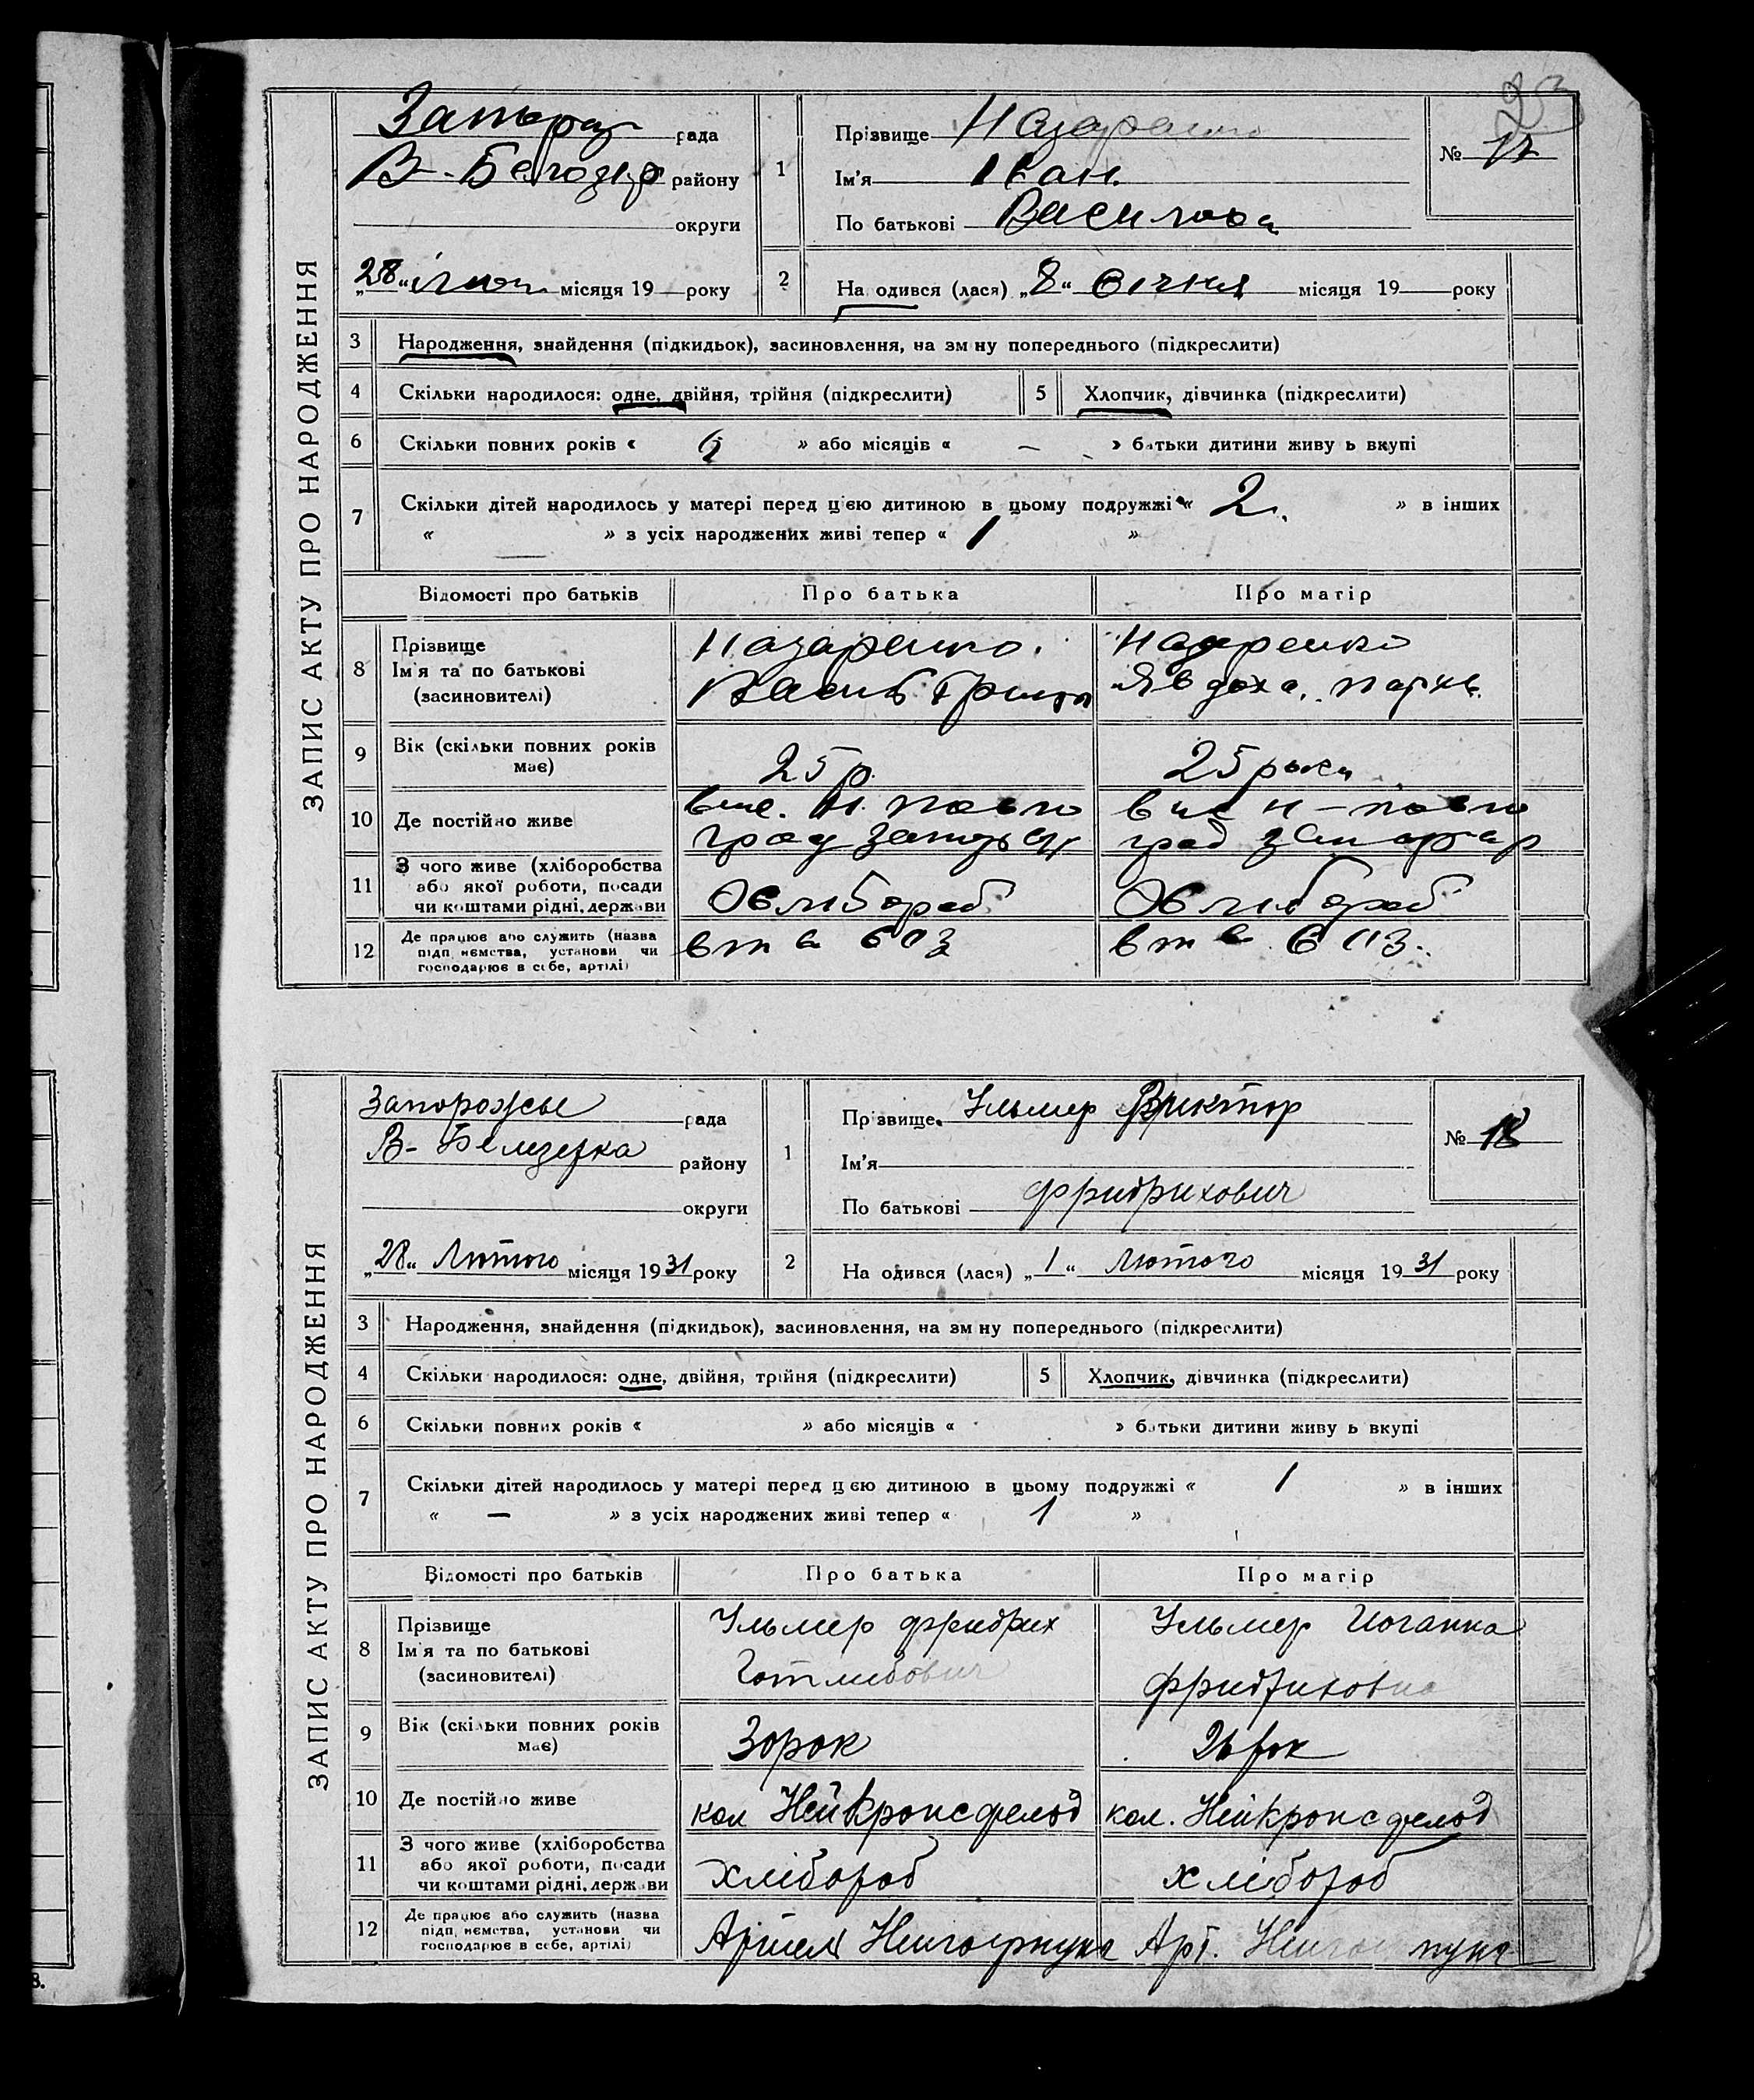 23
ЗАПИС АКТУ ПРО НАРОДЖЕННЯ
рада
В-Белозир району
округи
„28“ місяця 19 року
1
Прізвище Назаренко
Ім'я Іван.
По батькові Васильов
№ 17
2
На одився (лася) „8“ січня місяця 19 року
3 Народження, знайдення (підкидьок), засиновлення, на зм ну попереднього (підкреслити)
4 Скільки народилося: одне, двійня, трійня (підкреслити)
5 Хлопчик, дівчинка (підкреслити)
6 Скільки повних років « » або місяців « – » батьки дитини живу ь вкупі
7 Скільки дітей народилось у матері перед цією дитиною в цьому подружжі « 2. » в інших
« » з усіх народжених живі тепер « 1 »
Відомості про батьків Про батька Про матір
8 Прізвище
Ім'я та по батькові
(засиновителі)
Назаренко.
Василь Григор
Назаренко
Явдоха.
9 Вік (скільки повних років має)
25 р.
25 роки
10 Де постійно живе
град
град
11 З чого живе (хліборобства
або якої роботи, посади
чи коштами рідні, держави
Хлибороб
Хлибороб
12 Де працює або служить (назва
підп иємства, установи чи
господарює в себе, артілі)
в т а СОЗ
в т а СОЗ.
ЗАПИС АКТУ ПРО НАРОДЖЕННЯ
Запорожсы рада
В-Белизерка району
округи
„28“ Лютого місяця 1931 року
1
Пр звище Ульмер Виктор
Ім'я
По батькові Фридрихович
№ 18
2
На одився (лася) „1“ Лютого місяця 1931 року
3 Народження, знайдення (підкидьок), засиновлення, на зм ну попереднього (підкреслити)
4 Скільки народилося: одне, двійня, трійня (підкреслити)
5 Хлопчик, дівчинка (підкреслити)
6 Скільки повних років « » або місяців « » батьки дитини живу ь вкупі
7 Скільки дітей народилось у матері перед цією дитиною в цьому подружжі « 1 » в інших
« – » з усіх народжених живі тепер « 1 »
Відомості про батьків Про батька Про матір
8 Прізвище
Ім'я та по батькові
(засиновителі)
Ульмер Фридрих
Готлибович
Ульмер Иоганна
Фридриховна
9 Вік (скільки повних років має)
30 рок
26 рок
10 Де постійно живе
кол Нейкронсфельд
кол. Нейкронсфельд
11 З чого живе (хліборобства
або якої роботи, посади
чи коштами рідні, держави
хлібороб
хлібороб
12 Де працює або служить (назва
підп иємства, установи чи
господарює в себе, артілі)
Артель
Арт.